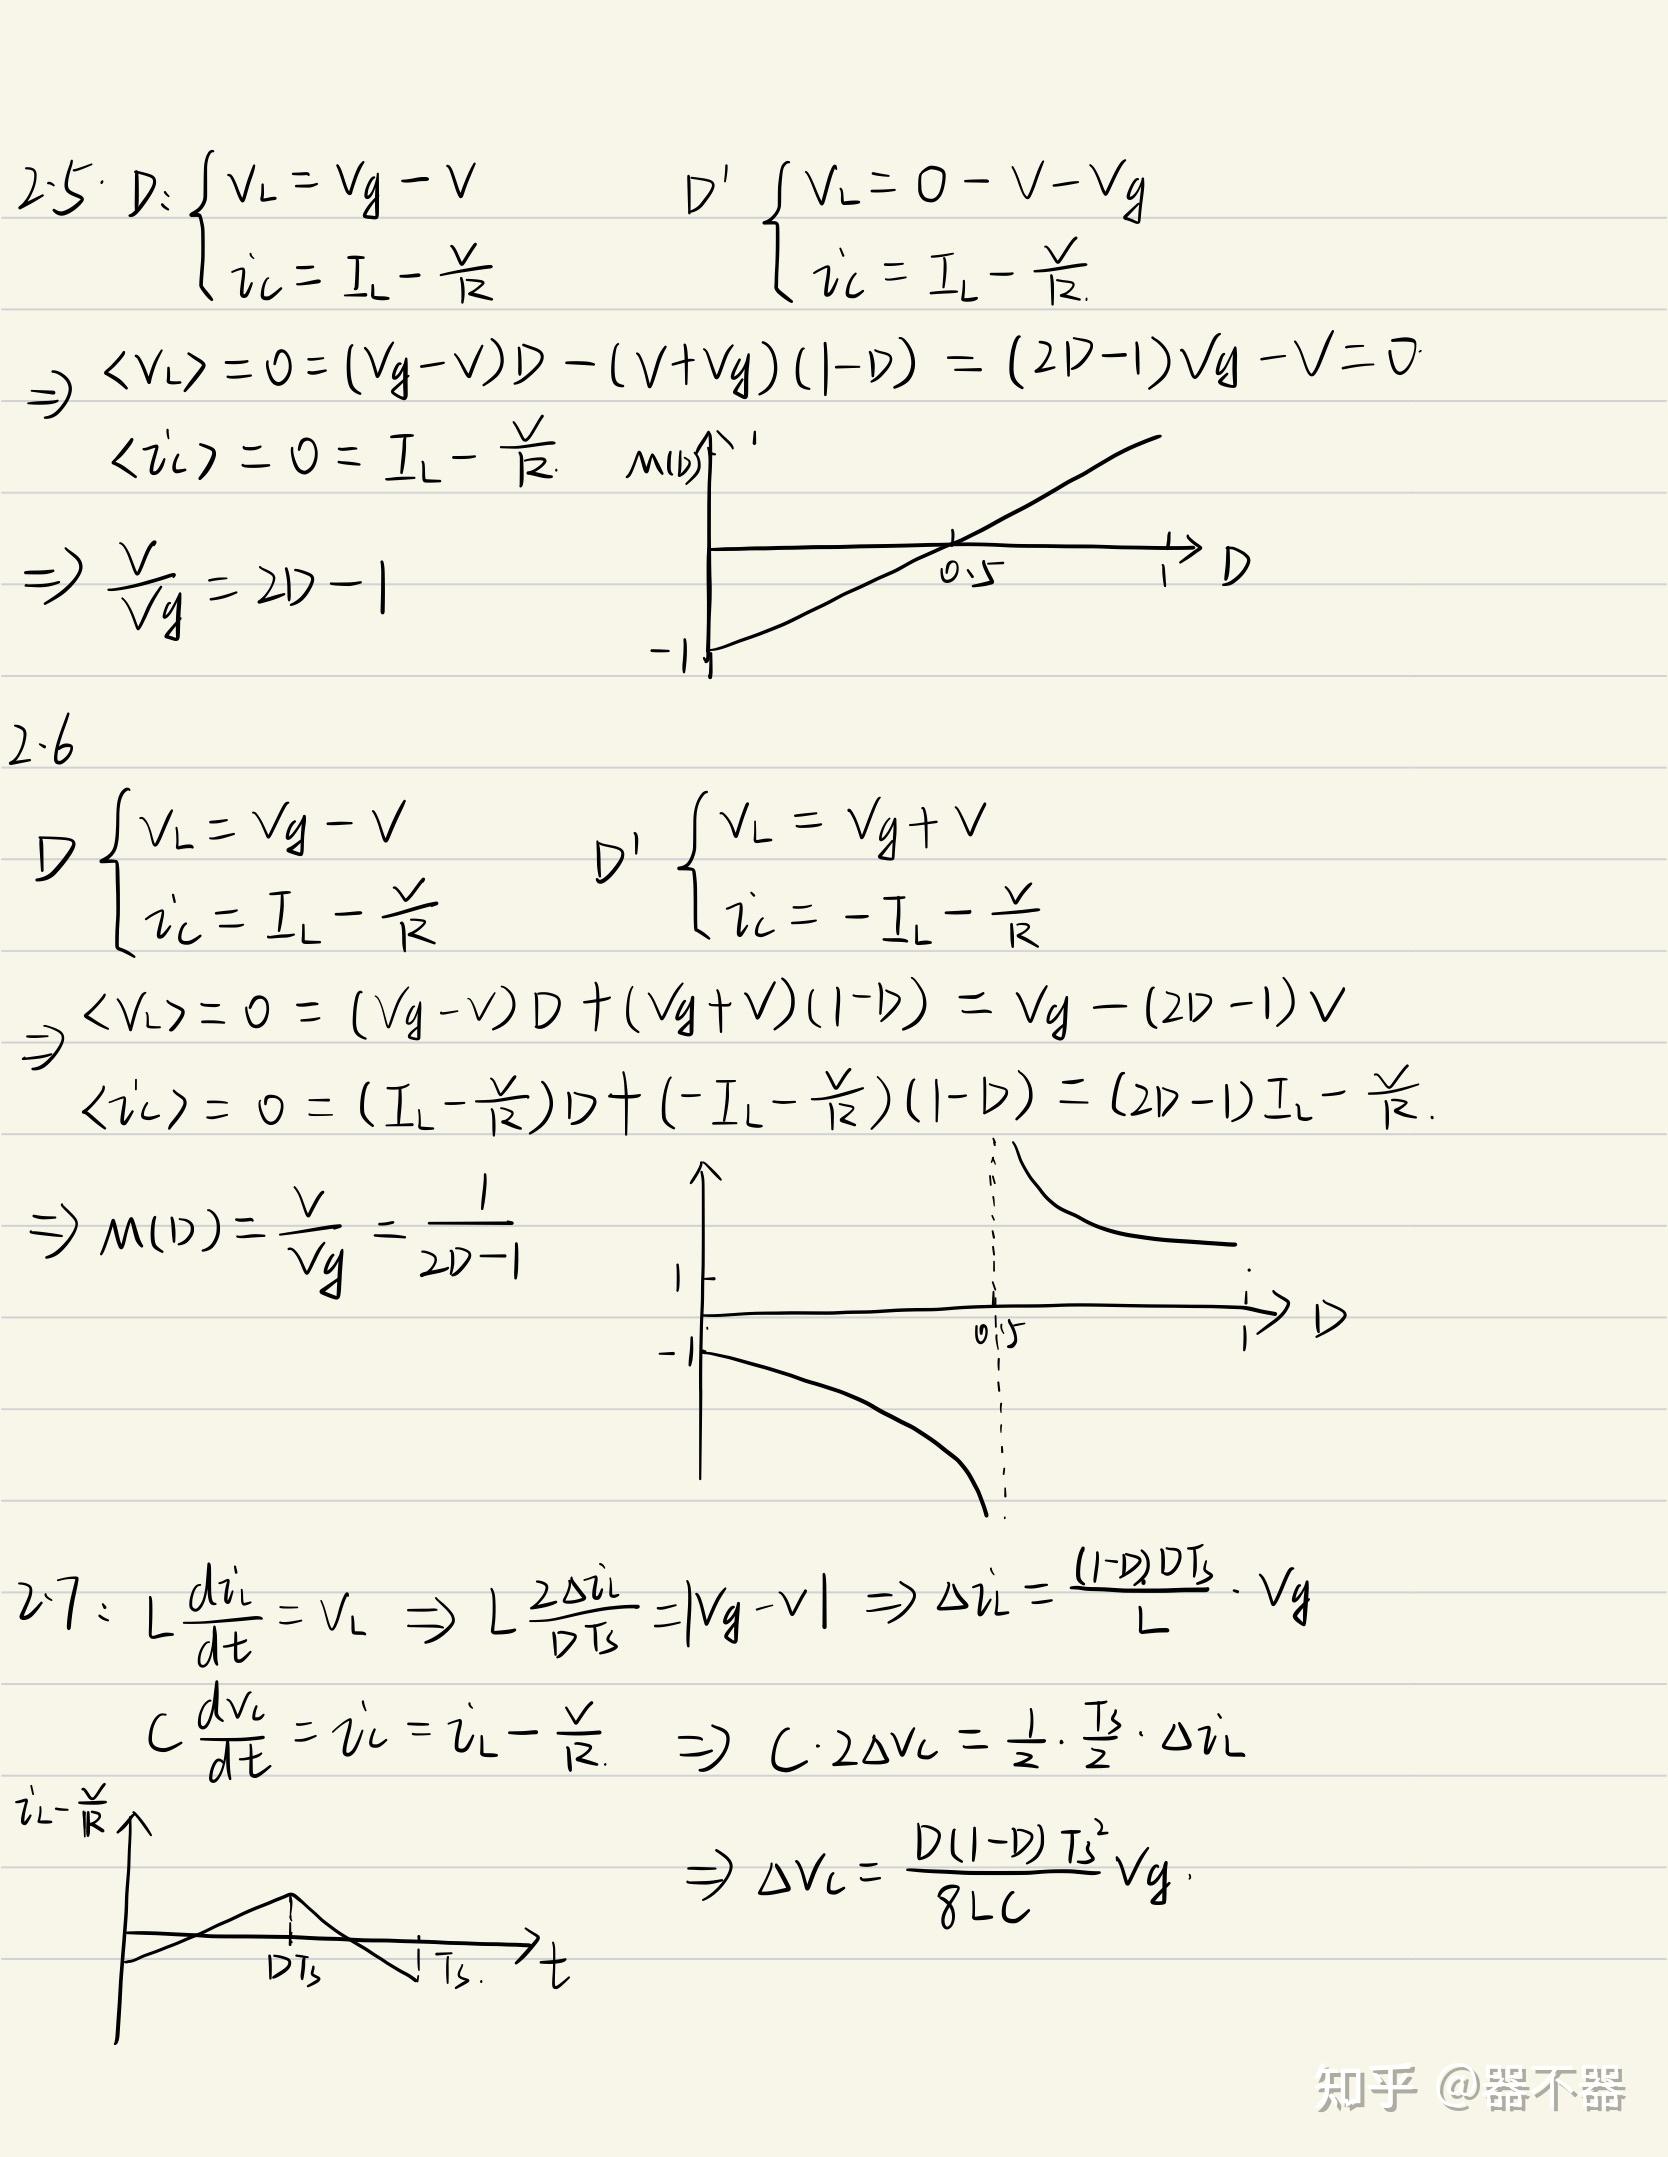 2.5. D: { V_L = Vg - V    D' { V_L = 0 - V - Vg
i_C = I_L - V/R    i_C = I_L - V/R.
⇒ <V_L> = 0 = (Vg-V)D - (V+Vg)(1-D) = (2D-1)Vg - V = 0.
<i_C> = 0 = I_L - V/R.
⇒ V/Vg = 2D-1
M(D) 1
0.5 1 D
-1
2.6
D { V_L = Vg - V    D' { V_L = Vg + V
i_C = I_L - V/R    i_C = -I_L - V/R
⇒ <V_L> = 0 = (Vg-V)D + (Vg+V)(1-D) = Vg - (2D-1)V
<i_C> = 0 = (I_L - V/R)D + (-I_L - V/R)(1-D) = (2D-1)I_L - V/R.
⇒ M(D) = V/Vg = 1/(2D-1)
1
0.5 1 D
-1
2.7: L di_L/dt = V_L ⇒ L 2Δi_L/DTs = |Vg-V| ⇒ Δi_L = (1-D)DTs/L · Vg
C dV_C/dt = i_C = i_L - V/R. ⇒ C·2ΔV_C = 1/2 · Ts/2 · Δi_L
i_L - V/R
⇒ ΔV_C = D(1-D)Ts²/8LC Vg.
DTs Ts. t
知乎 @器不器